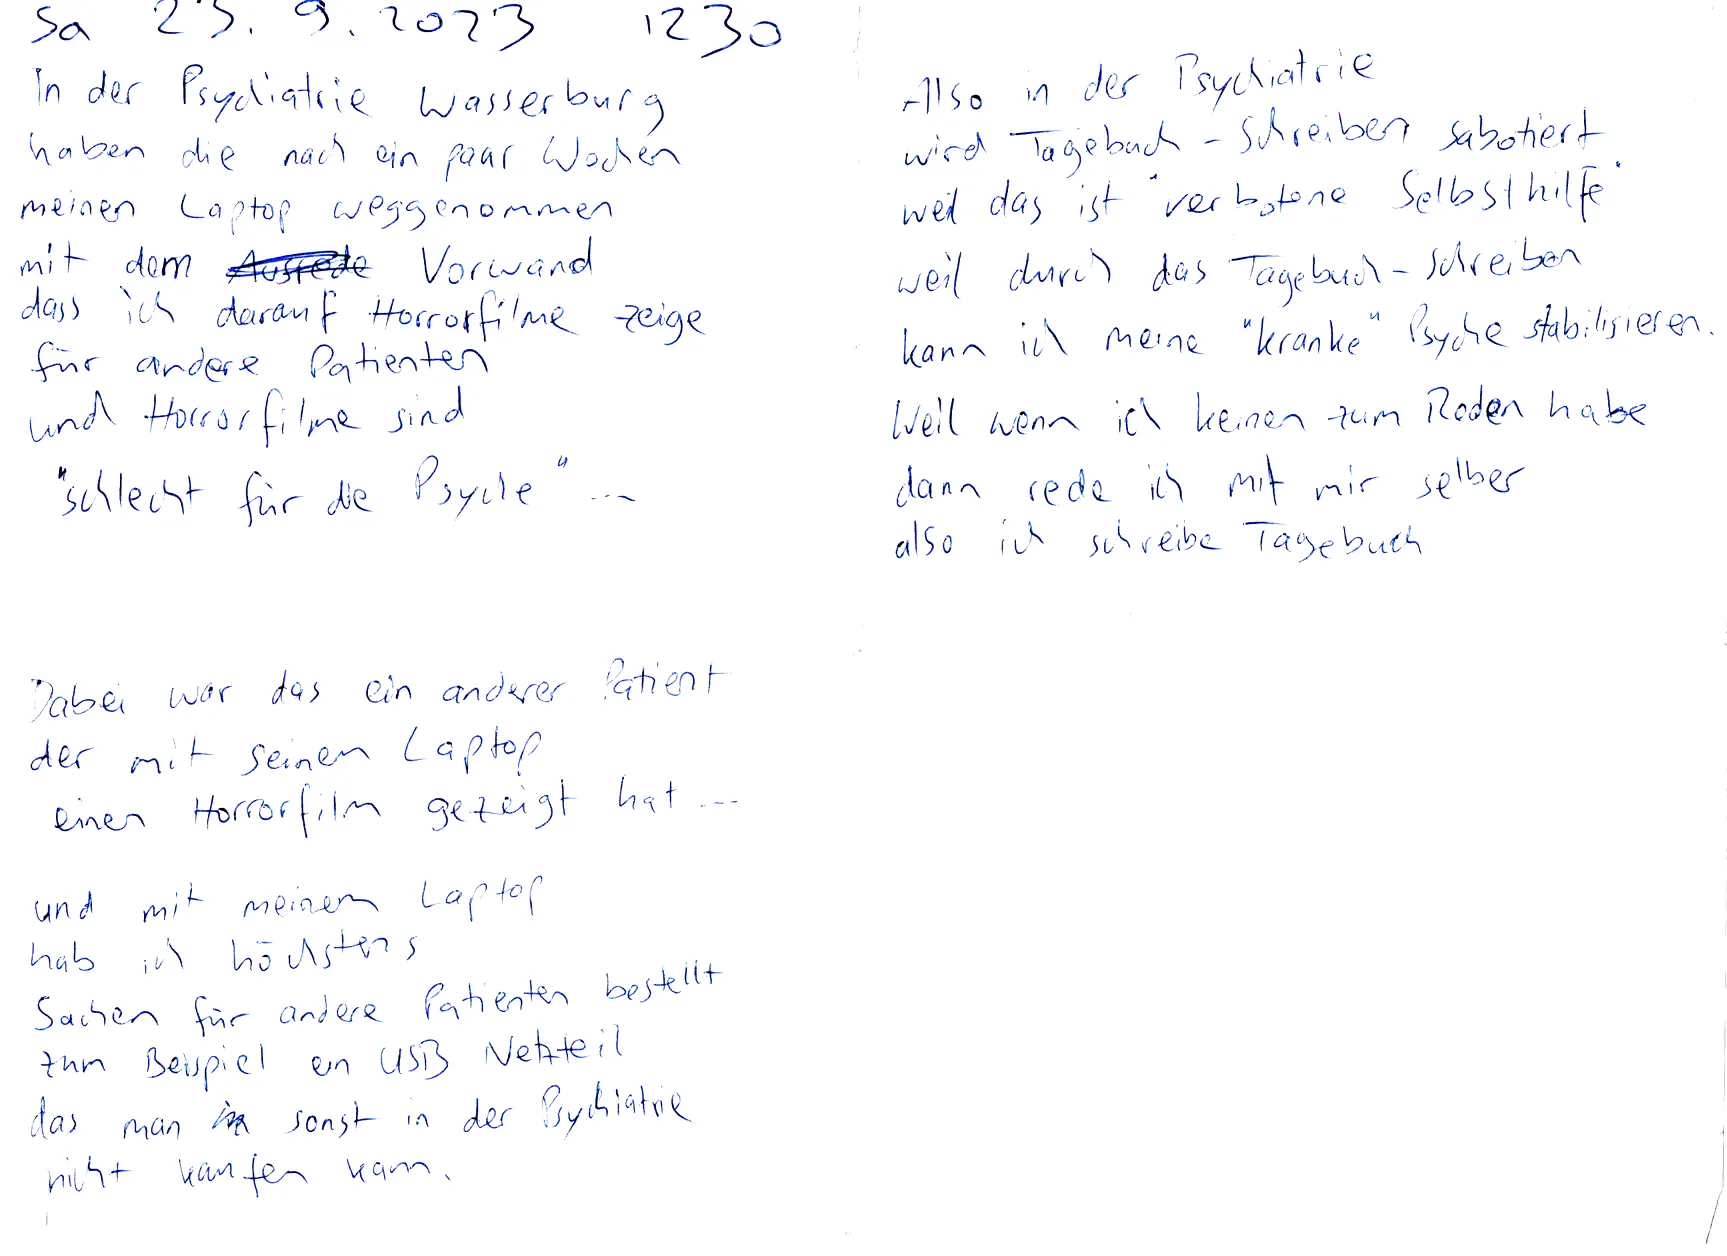 Sa 23.9.2023 1230
In der Psychiatrie Wasserburg
haben die nach ein paar Wochen
meinen Laptop weggenommen
mit dem Ausrede Vorwand
dass ich darauf Horrorfilme zeige
für andere Patienten
und Horrorfilme sind
"schlecht für die Psyche" ...
Dabei war das ein anderer Patient
der mit seinem Laptop
einen Horrorfilm gezeigt hat ...
und mit meinem Laptop
hab ich höchstens
Sachen für andere Patienten bestellt
zum Beispiel ein USB Netzteil
das man in sonst in der Psychiatrie
nicht kaufen kann.
Also in der Psychiatrie
wird Tagebuch-Schreiben sabotiert
weil das ist "verbotene Selbsthilfe"
weil durch das Tagebuch-schreiben
kann ich meine "kranke" Psyche stabilisieren.
Weil wenn ich keinen zum Reden habe
dann rede ich mit mir selber
also ich schreibe Tagebuch